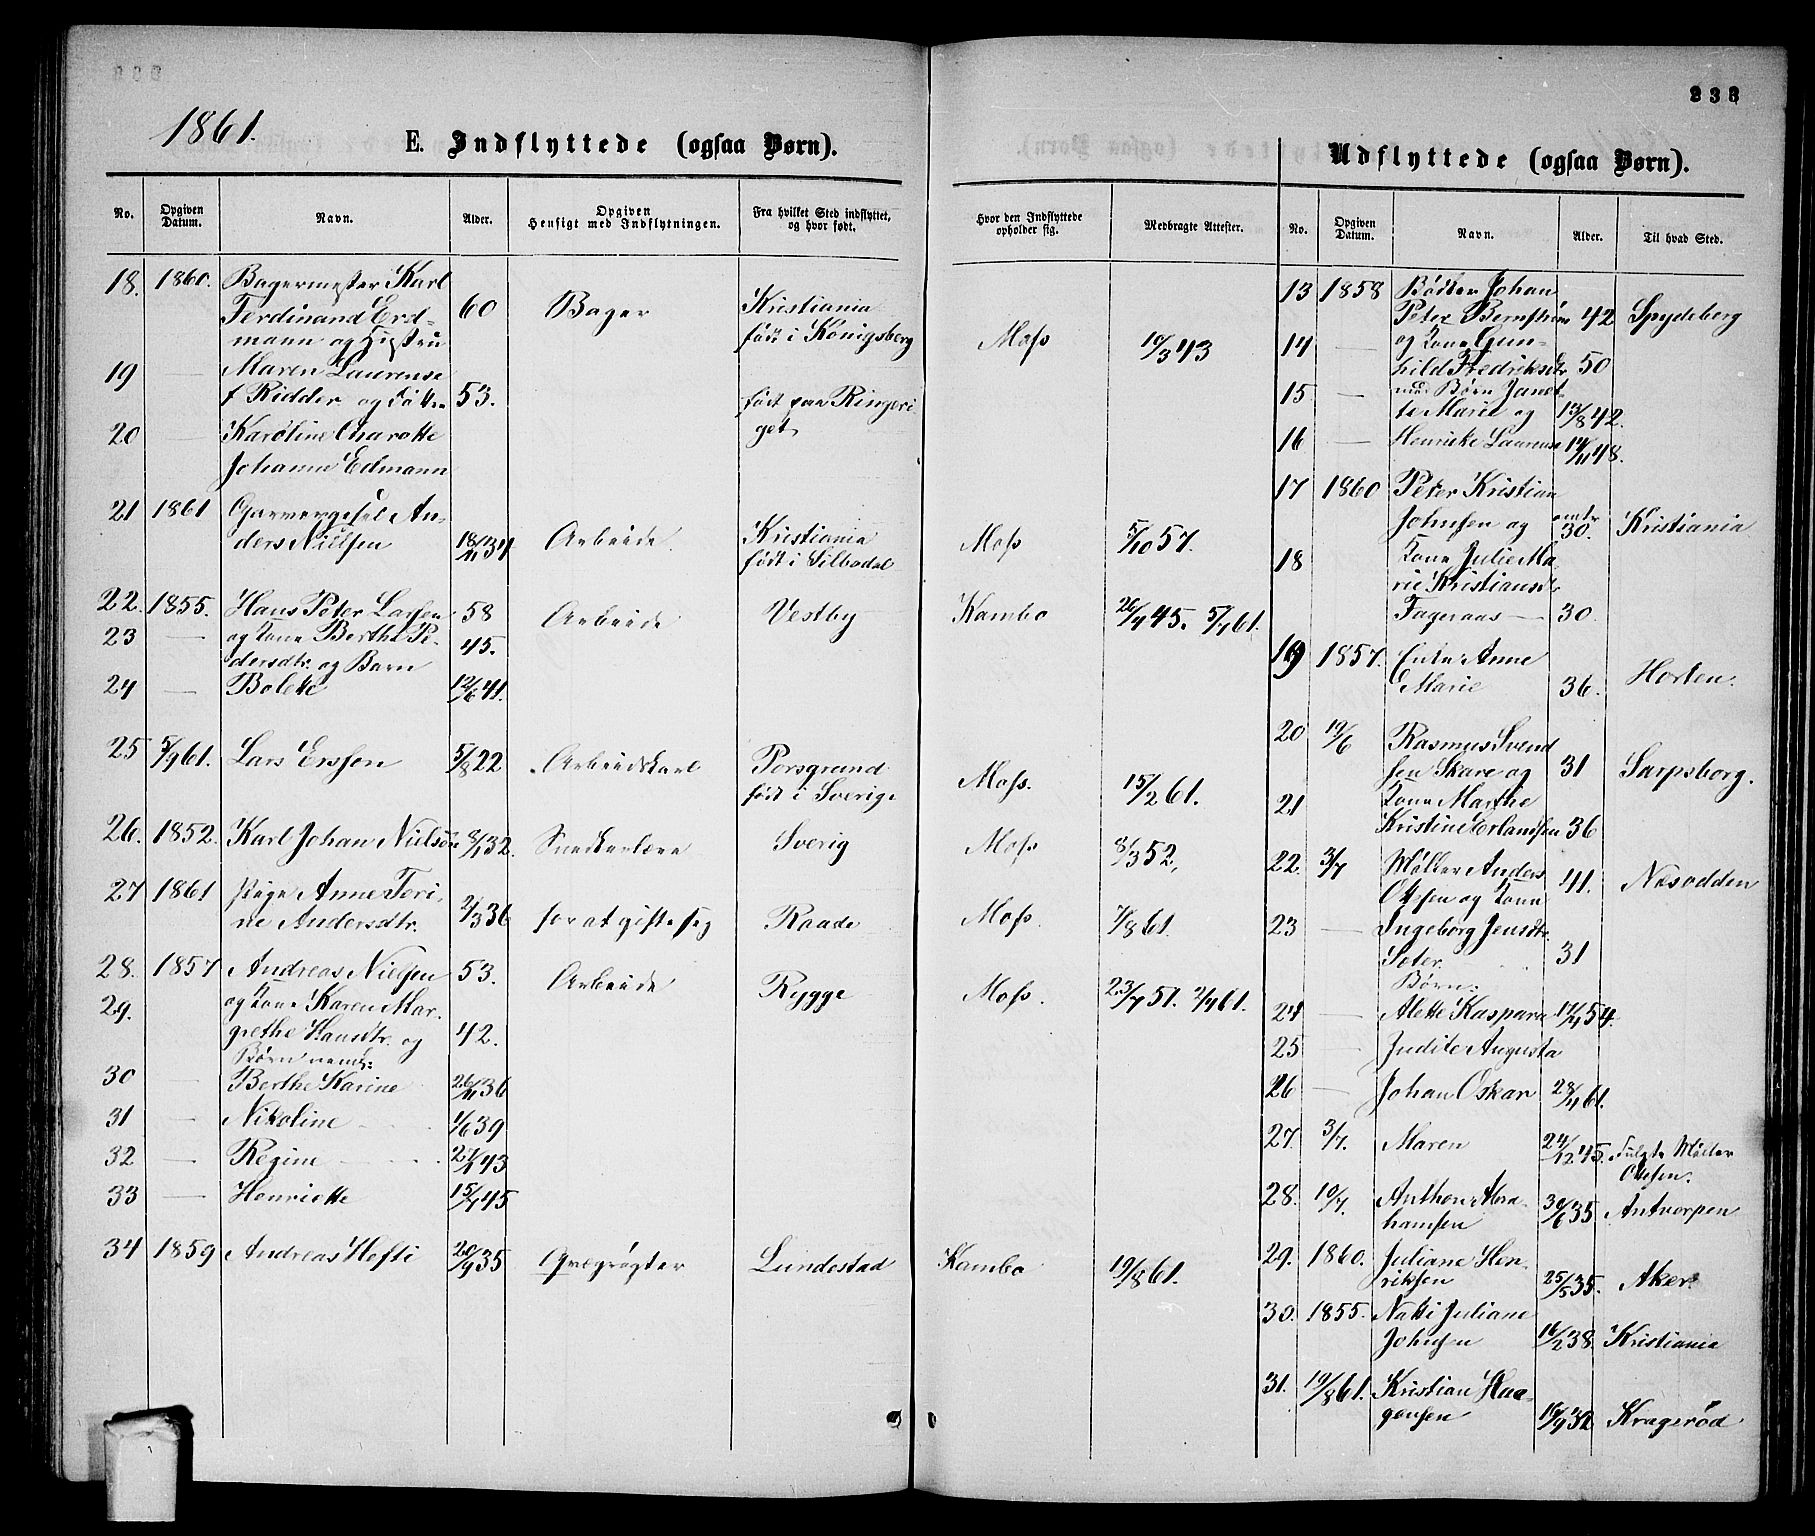 233
1861.
E. Indflyttede (ogsaa Børn).
No. Opgiven Datum. Navn. Alder. Opgiven Hensigt med Indflytningen. Fra hvilket Sted indflyttet, og hvor født. Hvor den Indflyttede opholder sig. Medbragte Attester.
18. 1860. Bagermester Karl
Ferdinand Erd- 60 Bager Kristiania
mann og Hustru født i Königsberg Moss 10/3 43
19 — Maren Laurense
f Ridder og 53. født paa Ringeri
20 — Karoline Charotte get
Johanne Edmann
21 1861 Garversvend An-
ders Nielsen 18/11 34 Arbeide. Kristiania Moss 5/10 57.
født i Silbodal
22. 1855. Hans Peter Larsen 58 Arbeide Vestby Kambo 26/4 45. 5/7 61.
23 — og Kone Berthe Pe- 45.
dersdtr. og Barn
24 — Bolette 12/6 41.
25 5/9 61. Lars Ersson 5/8 22 Arbeidskarl Porsgrund Moss. 15/2 61.
født i Sverige
26. 1852. Karl Johan Nielsen 8/1 32. Snedkerlære Sverig Moss 8/3 52,
27 1861 Pige Anne Tori-
ne Andersdtr. 2/3 36 for at gifte sig Raade Moss. 7/8 61.
28. 1857 Andreas Nielsen 53. Arbeide Rygge Moss. 23/7 51. 2/7 61.
29. og Kone Karen Mar-
grethe Hansdtr. og 42.
Børn neml:
30 — Berthe Karine 26/11 36
31 — Nikoline 1/6 39
32 — Regine 21/1 43
33 — Henriette 15/7 45
34 1859 Andreas Hefti 20/9 35 Qvægrøgter Lundestad Kambo 19/8 61.
Udflyttede (ogsaa Børn).
No. Opgiven Datum. Navn. Alder. Til hvad Sted.
13 1858 Bødker Johan
Peter Bernström 42 Spydeberg
14 — og Kone Gun-
hild Fredriksdtr 50
15 — med Børn Janet-
te Marie og 13/8 42.
16 — Henrikke Laurense 14/11 48.
17 1860 Peter Kristian
Johnsen og omtr 30. Kristiania
18 Kone Julie Ma-
rie Kristiansdtr
Fageraas — 30.
19 1857. Enke Anne
Marie 36. Horten.
20 19/6 Rasmus Svend
sen Skare og 31 Sarpsborg.
21 Kone Marthe
Kristine Erlandsen 36
22. 3/7 Møller Anders 41. Næsodden
Olsen og Kone
23 — Ingeborg Jensdtr.
31
Børn:
24 — Alette Kaspara 17/4 54.
25 — Judite Augusta
26 — Johan Oskar 28/4 61.
27. 3/7. Maren 24/12 45. Fulgte Møller
Olsen.
28. 10/7. Anthon Abra-
hamsen 30/6 35 Antverpen
29. 1860. Juliane Hen-
riksen 25/5 35. Aker
30. 1855. Natti Juliane
Johnsen 16/2 38. Kristiania
31. 19/8 61. Kristian Haa-
gensen 16/9 32 Kragerød